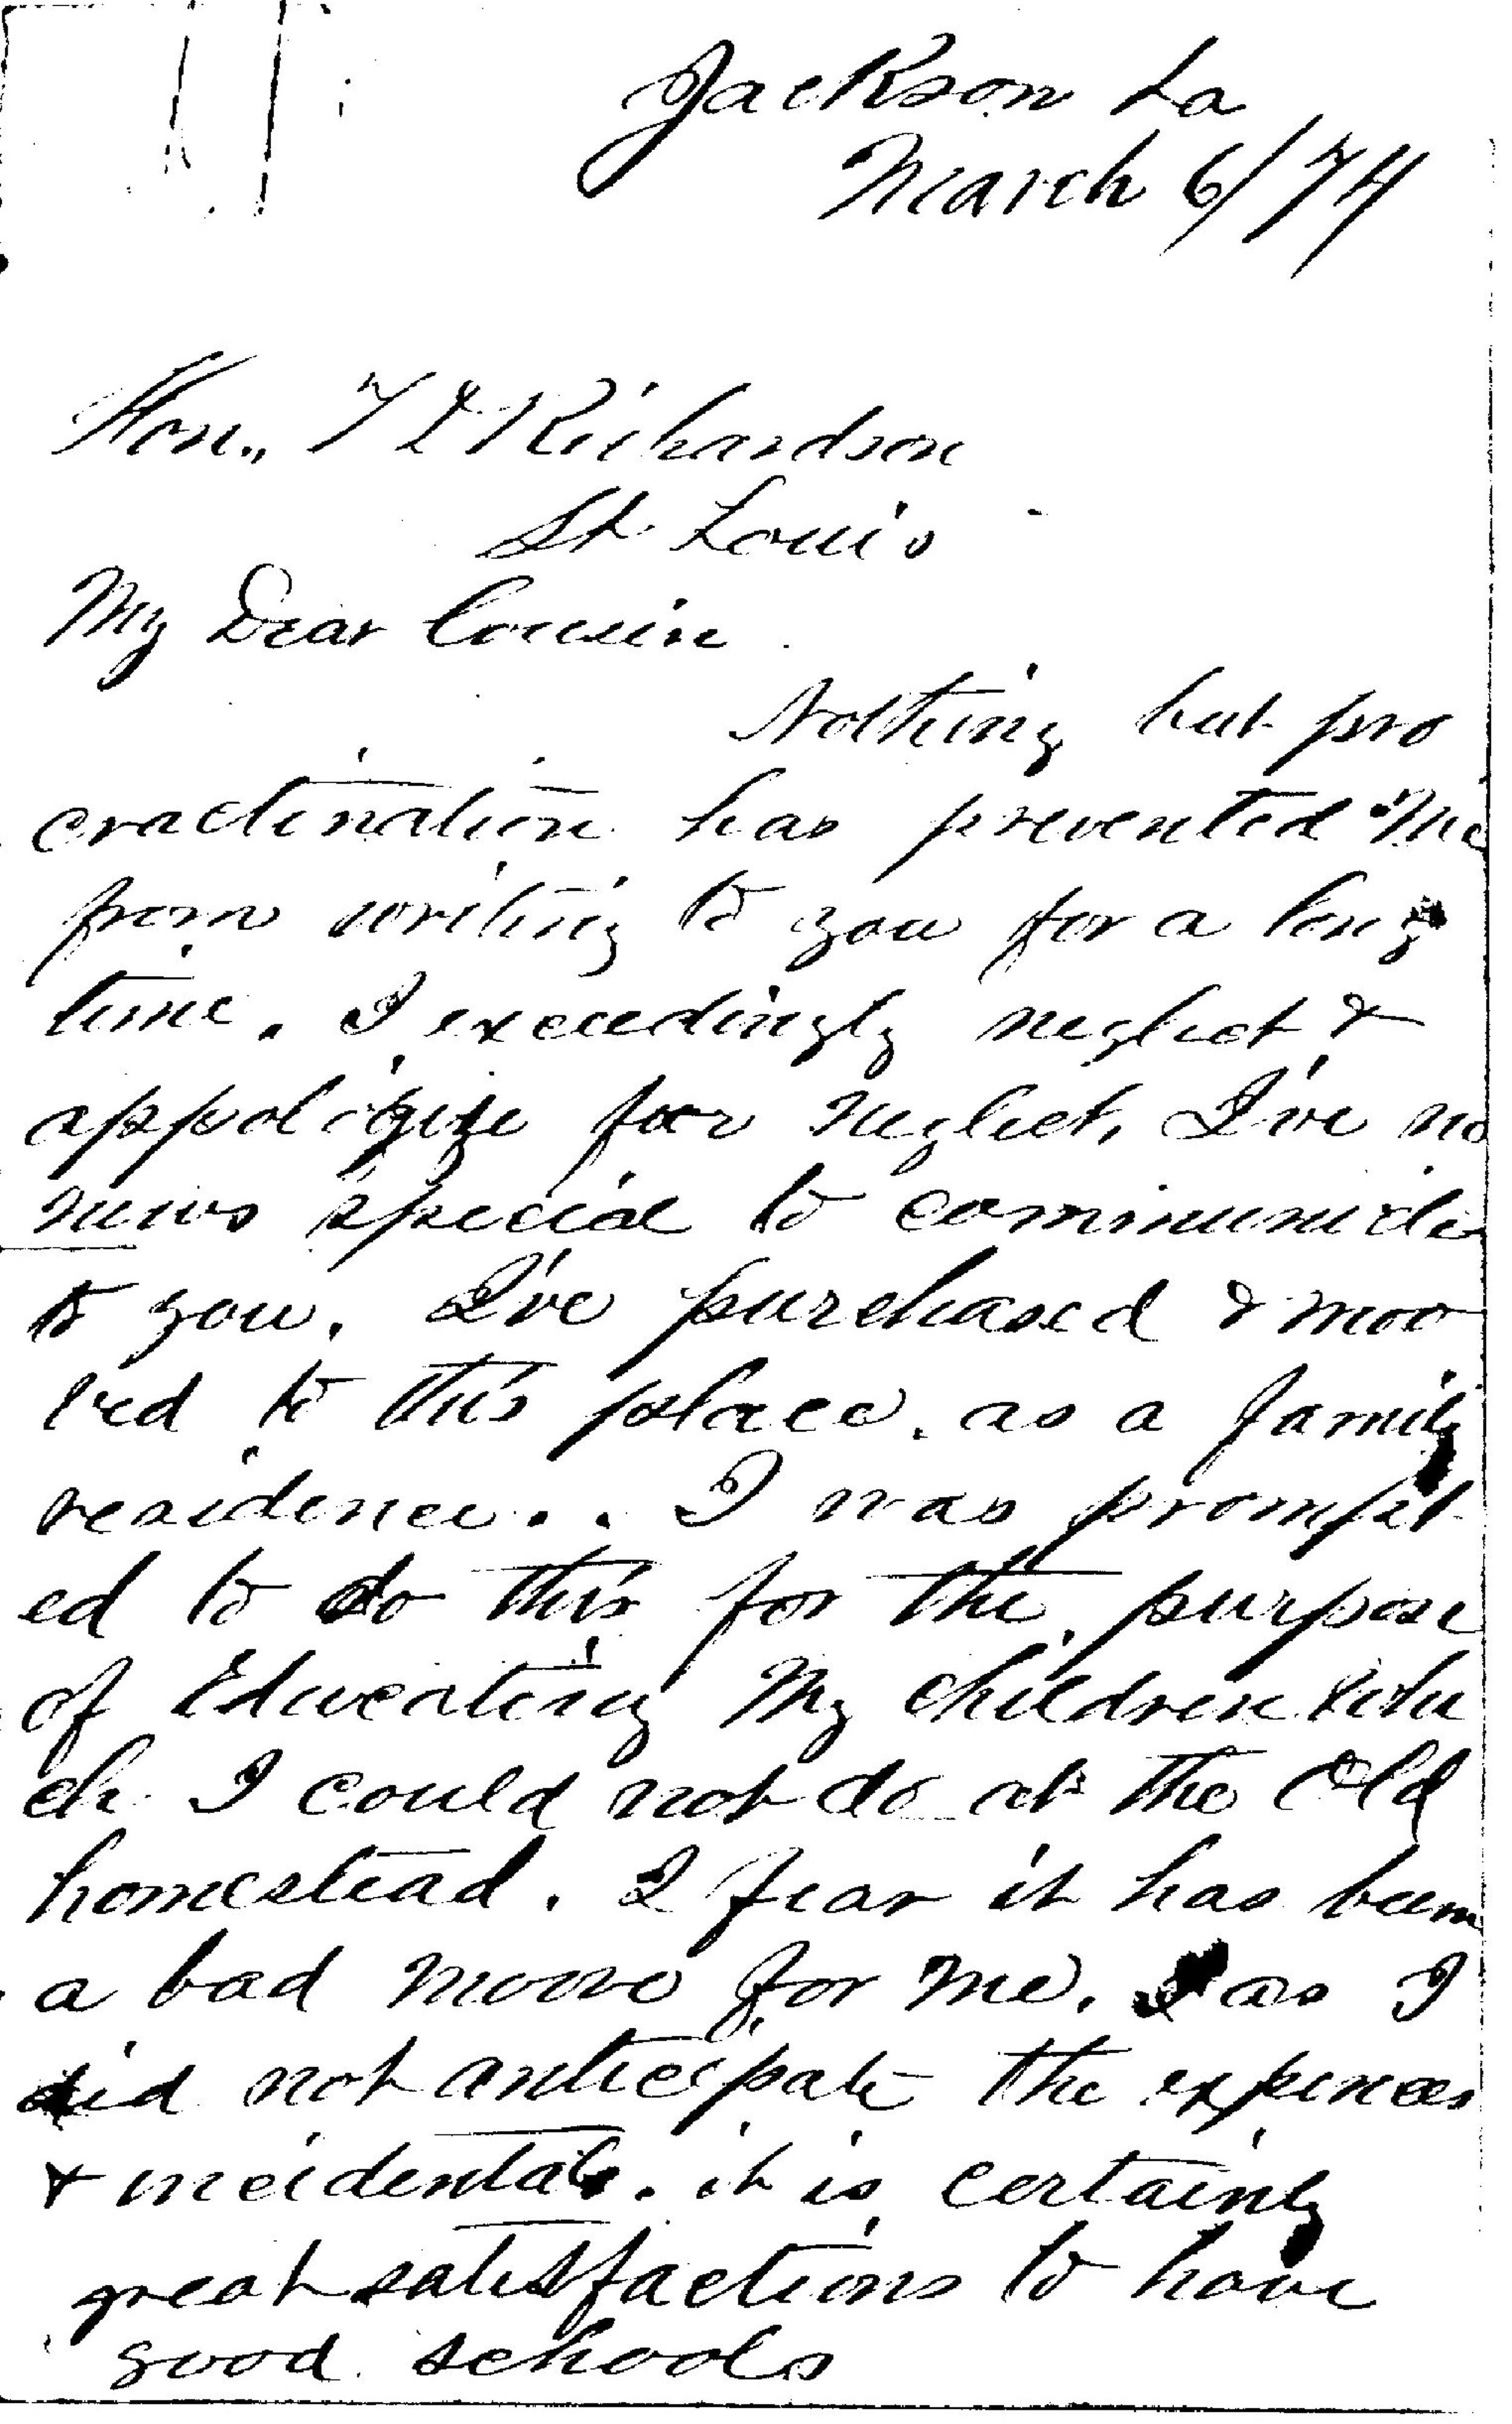 Jackson La
March 6/74
Hon,, T D Richardson
St Louis
My Dear Cousin.
Nothing but pro
cractination has prevented Me
from writing to you for a long
time. I exceedingly neglect &
appologize for neglect, I've no
news special to communicate
to you. I've purchased & moo
ved to this place. as a family
residence.. I was prompt
ed to do this for the purpose
of Educating My children whi
ch I could not do at the Old
homestead. I fear it has been
a bad moove for me. as I
did not anticipate the expences
& incidentals. it is certainly
great satisfactions to have
good schools